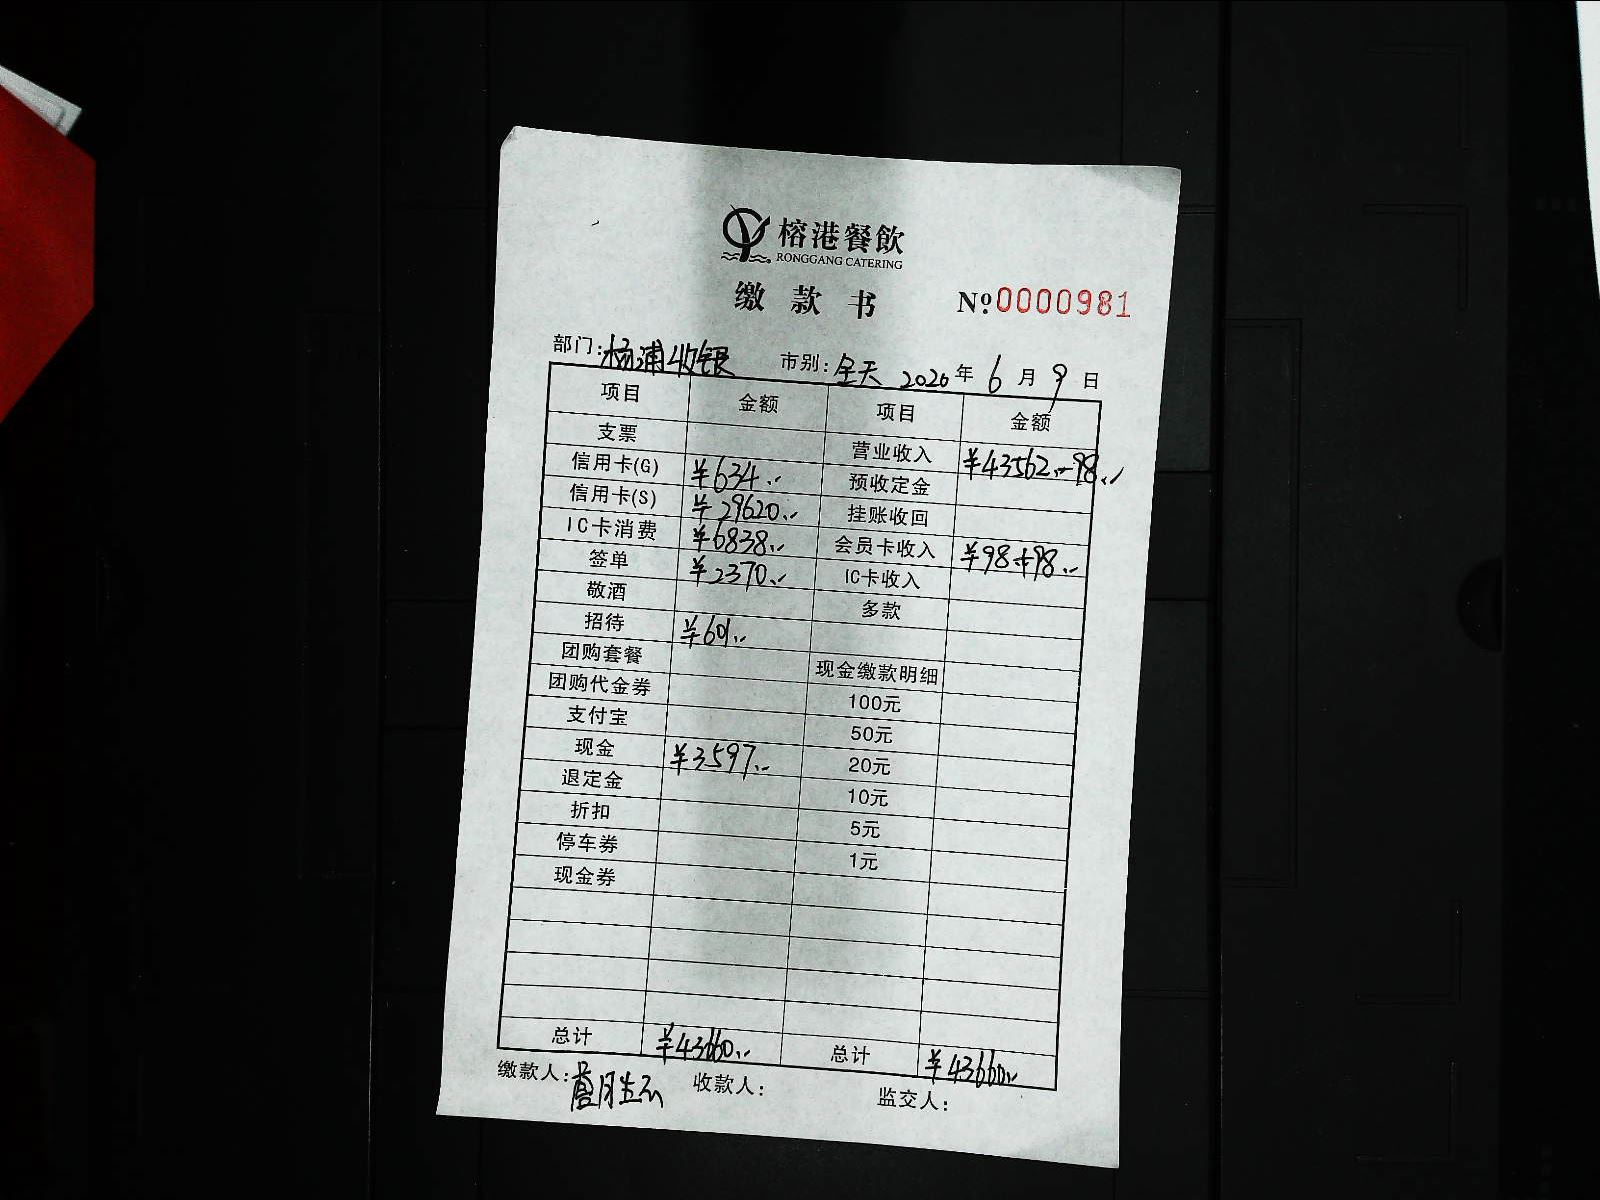 榕港餐飲
RONGGANG CATERING
缴款书 Nº0000981
部门:杨浦收银 市别:全天 2020年6月9日
项目 金额 项目 金额
支票 营业收入 ¥43562.-98.
信用卡(G) ¥634. 预收定金
信用卡(S) ¥29620. 挂账收回
IC卡消费 ¥6838. 会员卡收入 ¥98+98.
签单 ¥2370. IC卡收入
敬酒 多款
招待 ¥601.
团购套餐 现金缴款明细
团购代金券 100元
支付宝 50元
现金 ¥3597. 20元
退定金 10元
折扣 5元
停车券 1元
现金券
总计 ¥43660. 总计 ¥43660.
缴款人: 收款人: 监交人: